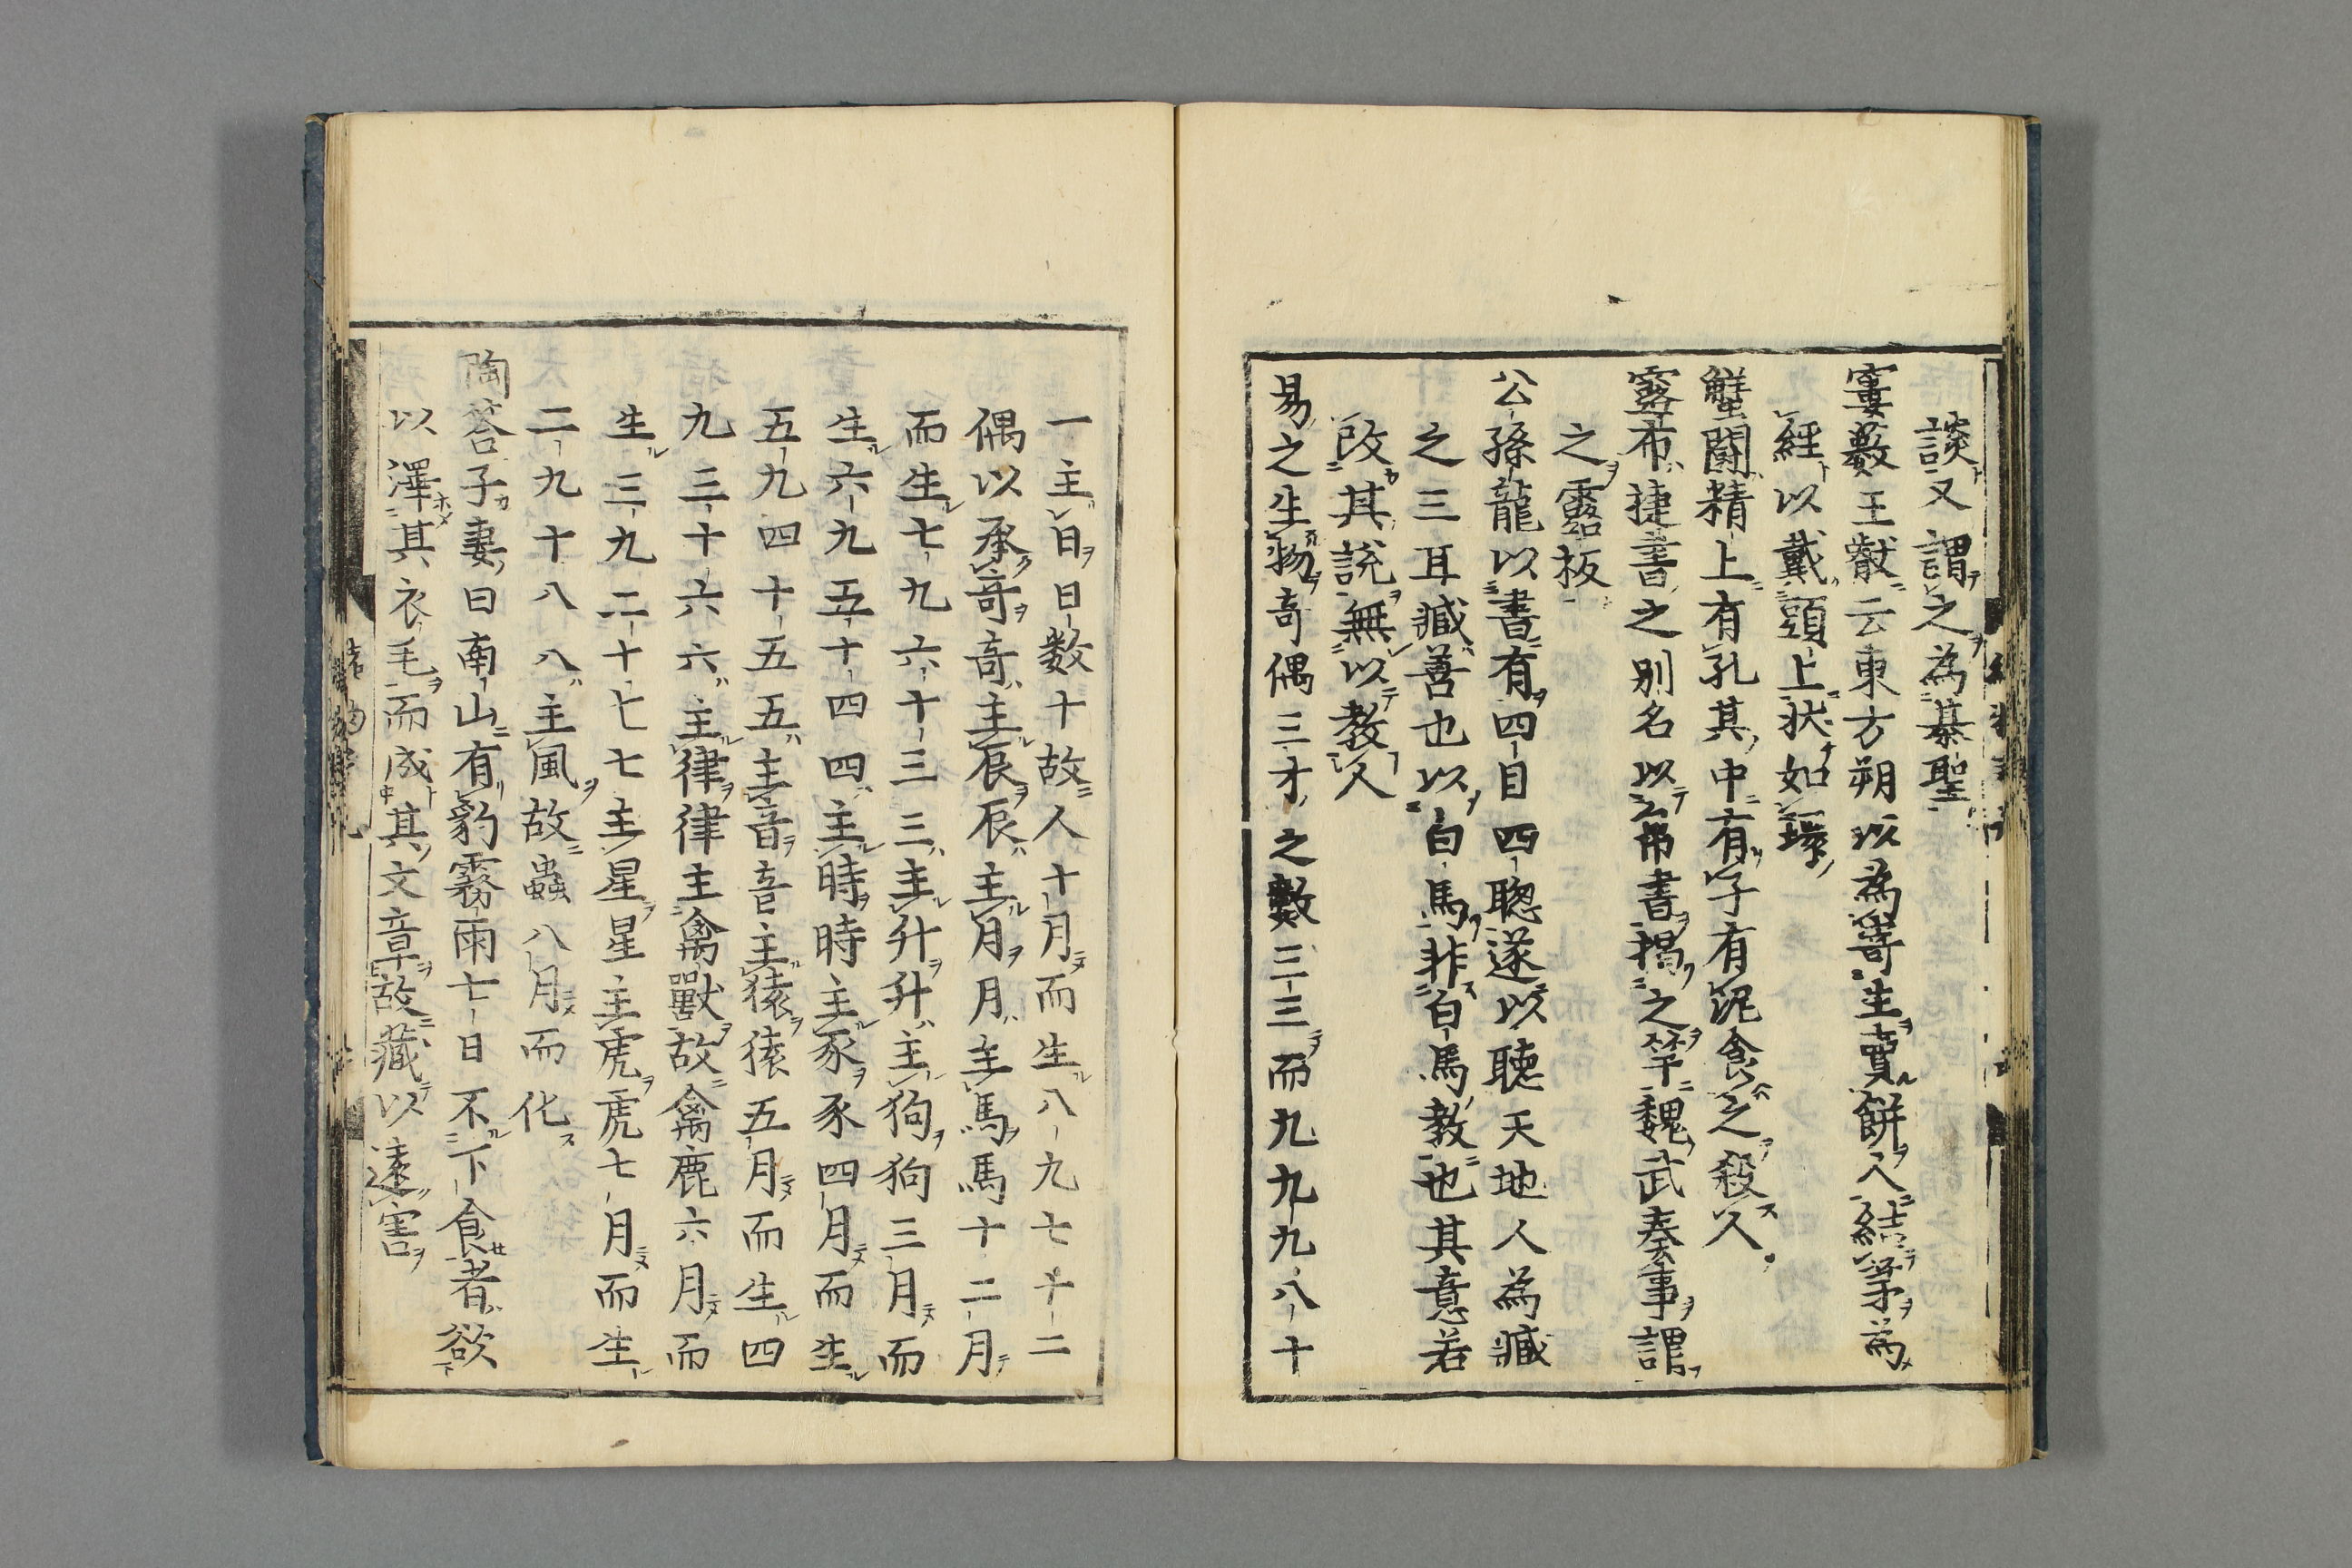 談又謂之為棊聖
窶藪王獻云東方朔以為寄生賣餅人結茅為
経以戴頭上状如環
蟹闘精上有孔其中有子有泥食之殺人
露布捷書之別名以帛書揭之竿魏武奏事謂
之露板
公孫龍以書有四目四聰遂以聴天地人為臧
之三耳臧善也以白馬非白馬教也其意若
改其説無以教人
易之生物奇偶三才之數三三而九九九八十
一主日日数十故人十月而生八九七十二
偶以承奇奇主辰辰主月月主馬馬十二月
而生七九六十三三主升升主狗狗三月而
生六九五十四四主時時主豕豕四月而生
五九四十五五主音音主猿猿五月而生四
九三十六六主律律主禽獸故禽鹿六月而
生三九二十七七主星星主虎虎七月而生
二九十八八主風故蟲八月而化
陶荅子妻曰南山有豹霧雨七日不下食者欲
以澤其衣毛而成其文章故藏以遠害